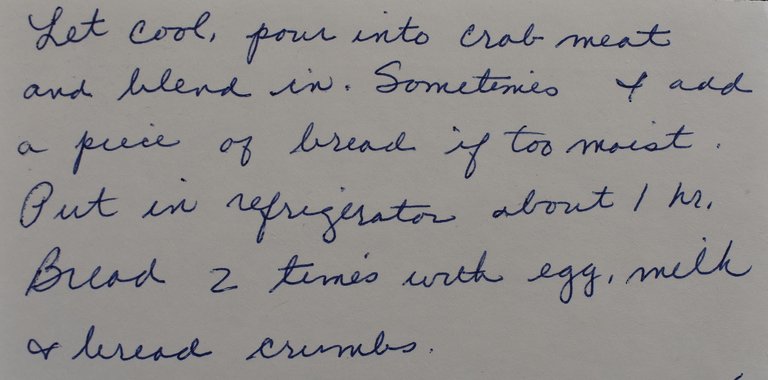 Let cool, pour into crab meat
and blend in. Sometimes I add
a piece of bread if too moist.
Put in refrigerator about 1 hr.
Bread 2 times with egg, milk
& bread crumbs.